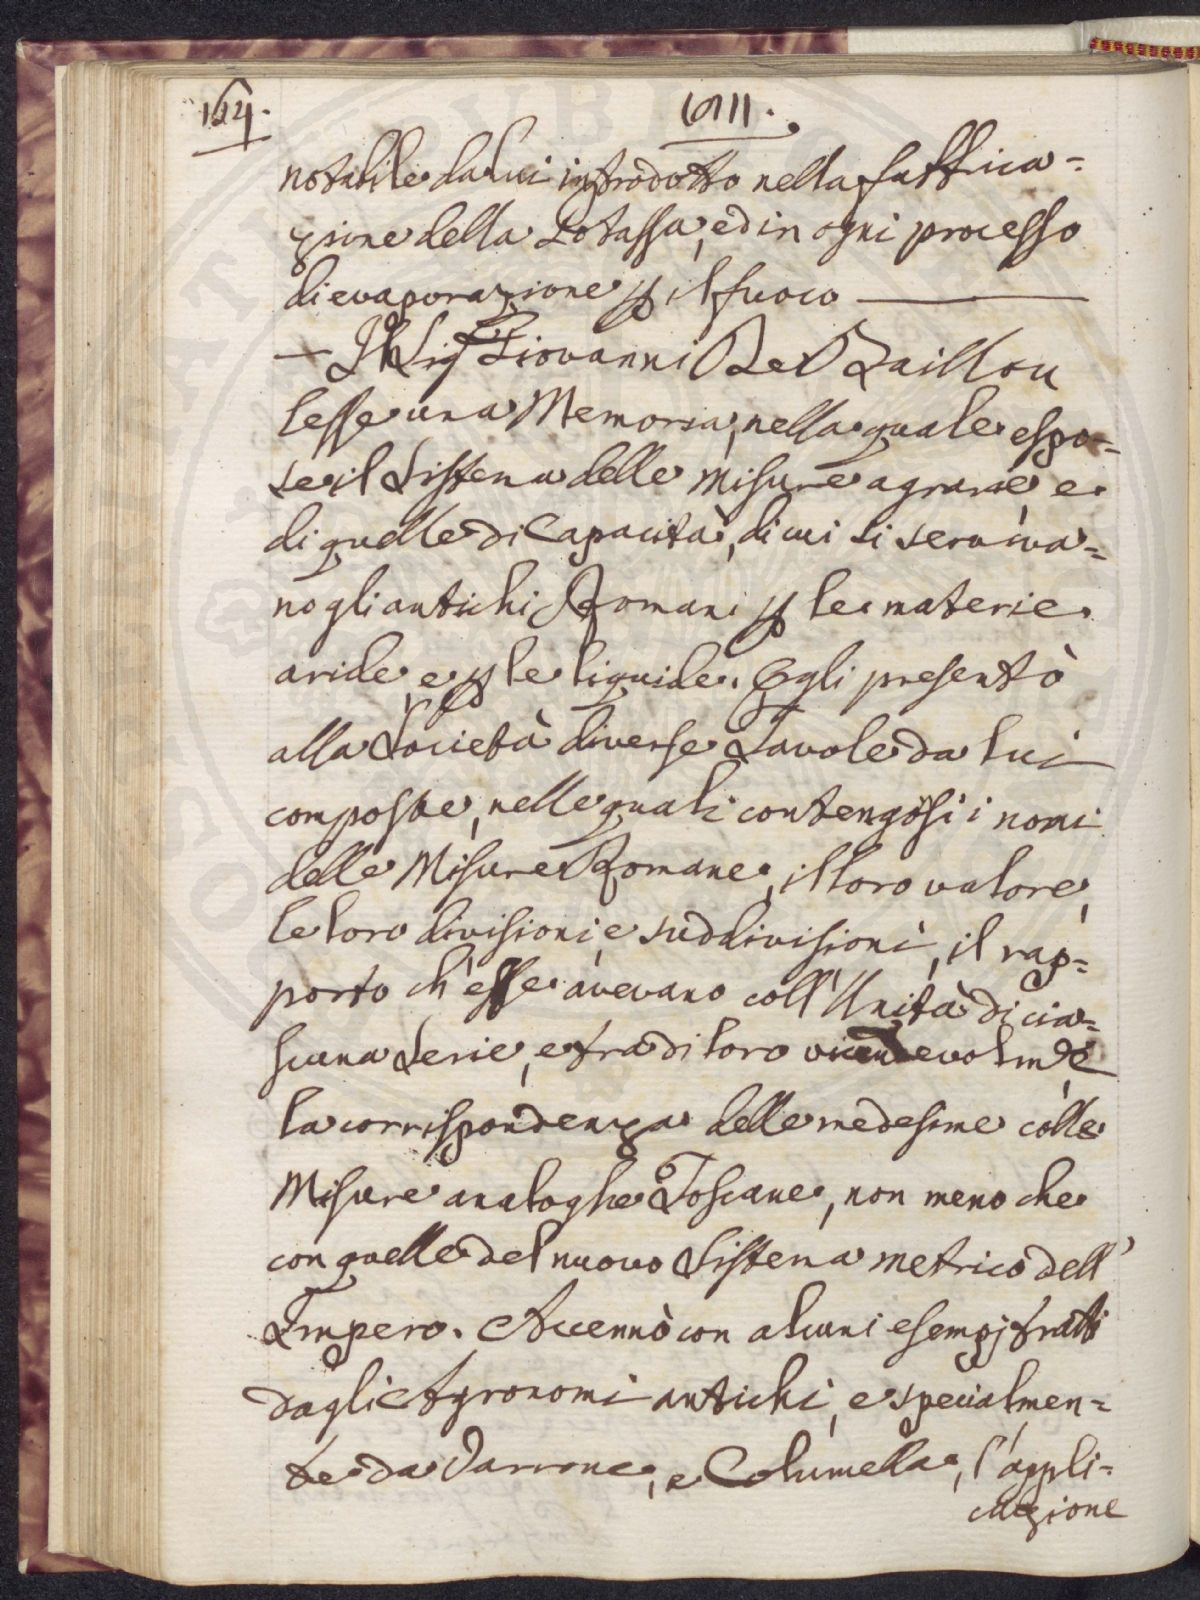 164.
1811.
notabile da lui introdotto nella fabbrica=
zione della Potassa, ed in ogni processo
di evaporazione ꝑ il fuoco
— Il Sig.r Giovanni De Baillou
lesse una Memoria, nella quale espo=
se il Sistema delle Misure agrarie, e
di quelle di Capacità, di cui si serviva=
no gli antichi Romani ꝑ le materie
aride, e ꝑ le liquide. Egli presentò
alla Società diverse Tavole da lui
composte, nelle quali contengosi i nomi
delle Misure Romane, il loro valore,
le loro divisioni, e suddivisioni, il rap=
porto ch'esse avevano coll'Unità di cia=
scuna Serie, e fra di loro vicendevolm.e, e
la corrispondenza delle medesime colle
Misure analoghe Toscane, non meno che
con quelle del nuovo Sistema metrico dell'
Impero. Accennò con alcuni esempj tratti
dagli Agronomi antichi, e specialmen=
te da Varrone, e Columella, l'appli=
cazione